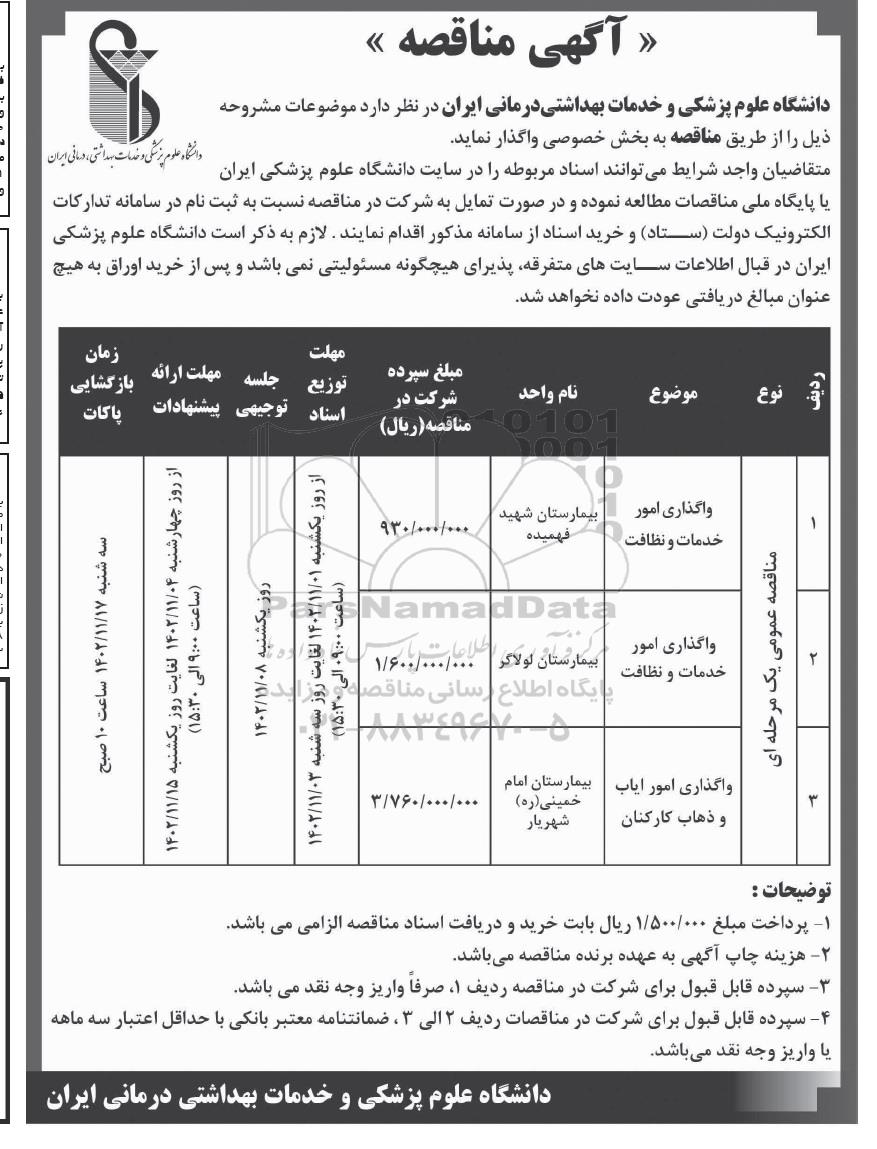 « آگهی مناقصه »
دانشگاه علوم پزشکی و خدمات بهداشتی، درمانی ایران
دانشگاه علوم پزشکی و خدمات بهداشتی‌درمانی ایران در نظر دارد موضوعات مشروحه
ذیل را از طریق مناقصه به بخش خصوصی واگذار نماید.
متقاضیان واجد شرایط می‌توانند اسناد مربوطه را در سایت دانشگاه علوم پزشکی ایران
یا پایگاه ملی مناقصات مطالعه نموده و در صورت تمایل به شرکت در مناقصه نسبت به ثبت نام در سامانه تدارکات
الکترونیک دولت (ستاد) و خرید اسناد از سامانه مذکور اقدام نمایند . لازم به ذکر است دانشگاه علوم پزشکی
ایران در قبال اطلاعات سایت های متفرقه، پذیرای هیچگونه مسئولیتی نمی باشد و پس از خرید اوراق به هیچ
عنوان مبالغ دریافتی عودت داده نخواهد شد.
ردیف
نوع
موضوع
نام واحد
مبلغ سپرده
شرکت در
مناقصه(ریال)
مهلت
توزیع
اسناد
جلسه
توجیهی
مهلت ارائه
پیشنهادات
زمان
بازگشایی
پاکات
۱
مناقصه عمومی یک مرحله ای
واگذاری امور
خدمات و نظافت
بیمارستان شهید
فهمیده
۹۳۰/۰۰۰/۰۰۰
از روز یکشنبه ۱۴۰۲/۱۱/۰۱ لغایت روز سه شنبه ۱۴۰۲/۱۱/۰۳
(ساعت ۰۹:۰۰ الی ۱۵:۳۰)
روز یکشنبه ۱۴۰۲/۱۱/۰۸
از روز چهارشنبه ۱۴۰۲/۱۱/۰۴ لغایت روز یکشنبه ۱۴۰۲/۱۱/۱۵
(ساعت ۹:۰۰ الی ۱۵:۳۰)
سه شنبه ۱۴۰۲/۱۱/۱۷ ساعت ۱۰ صبح
۲
واگذاری امور
خدمات و نظافت
بیمارستان لولاگر
۱/۶۰۰/۰۰۰/۰۰۰
۳
واگذاری امور ایاب
و ذهاب کارکنان
بیمارستان امام
خمینی(ره)
شهریار
۳/۷۶۰/۰۰۰/۰۰۰
ParsNamadData
پایگاه اطلاع رسانی مناقصه و مزایده
۰۲۱-۸۸۳۴۹۶۷۰-۵
توضیحات :
۱- پرداخت مبلغ ۱/۵۰۰/۰۰۰ ریال بابت خرید و دریافت اسناد مناقصه الزامی می باشد.
۲- هزینه چاپ آگهی به عهده برنده مناقصه می‌باشد.
۳- سپرده قابل قبول برای شرکت در مناقصه ردیف ۱، صرفاً واریز وجه نقد می باشد.
۴- سپرده قابل قبول برای شرکت در مناقصات ردیف ۲ الی ۳ ، ضمانتنامه معتبر بانکی با حداقل اعتبار سه ماهه
یا واریز وجه نقد می‌باشد.
دانشگاه علوم پزشکی و خدمات بهداشتی درمانی ایران